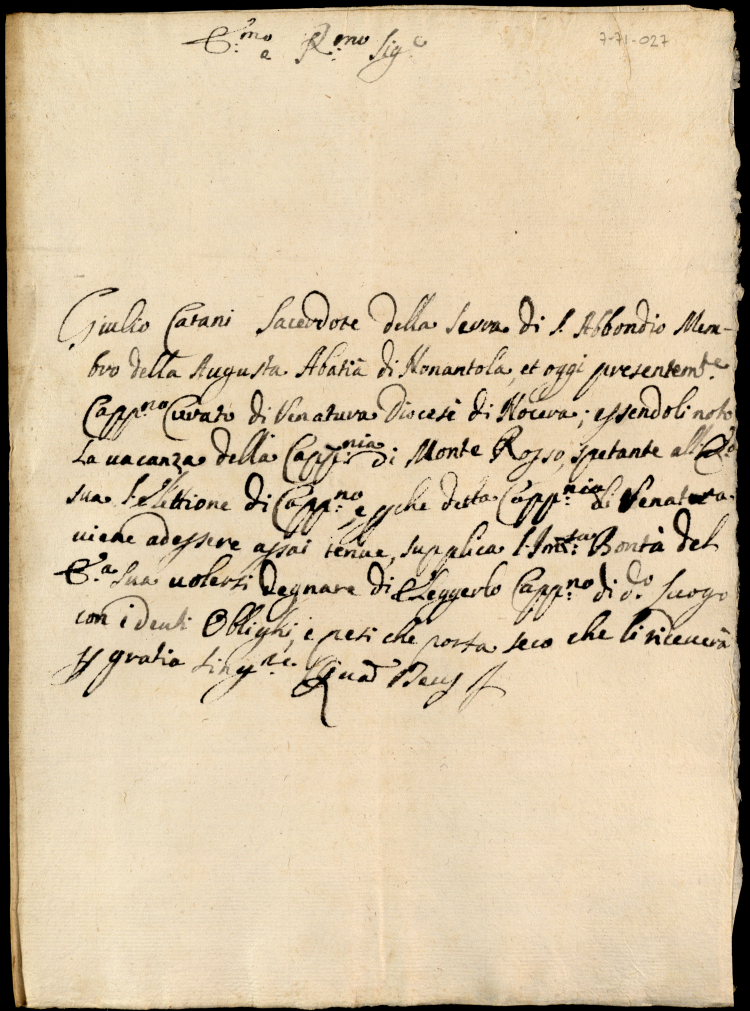 E.mo e R.mo Sig.e
7-71-027
Giulio Catani Sacerdote della Serra di S. Abbondio Mem-
bro della Augusta Abatia di Nonantola, et oggi presentem.te
Capp.no Curato di Venatura Diocesi di Nocera; essendoli noto
la vacanza della Capp.nia di Monte Rosso, spetante all'E.
sua l'Elettione di Capp.no, e che detta Capp.nia di Venatura
viene adessere assai tenue, supplica l'Im.sa Bontà del
E.a sua volersi degnare di Eleggerlo Capp.no di d.o luogo
con i deuti Oblighi, e pesi che porta seco che li riceverà
gratia sing.re Quad Deus